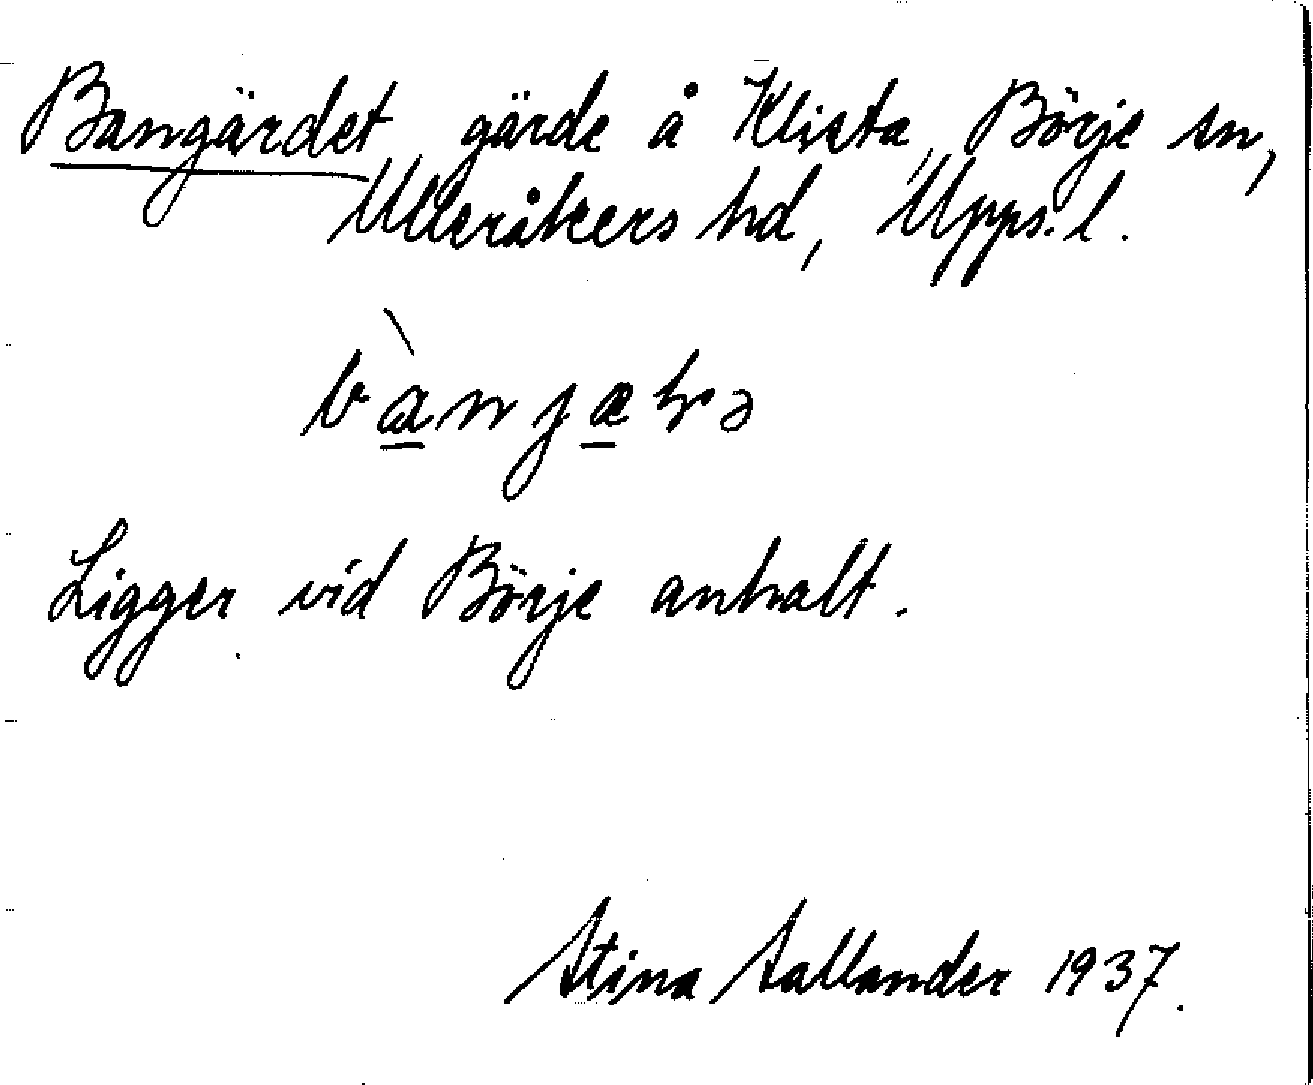 Bangärdet gärde å Klista, Börje sn,
Ulleråkers hd, Upps. l.
Ligger vid Börje anhalt.
Stina Sallander 1937.